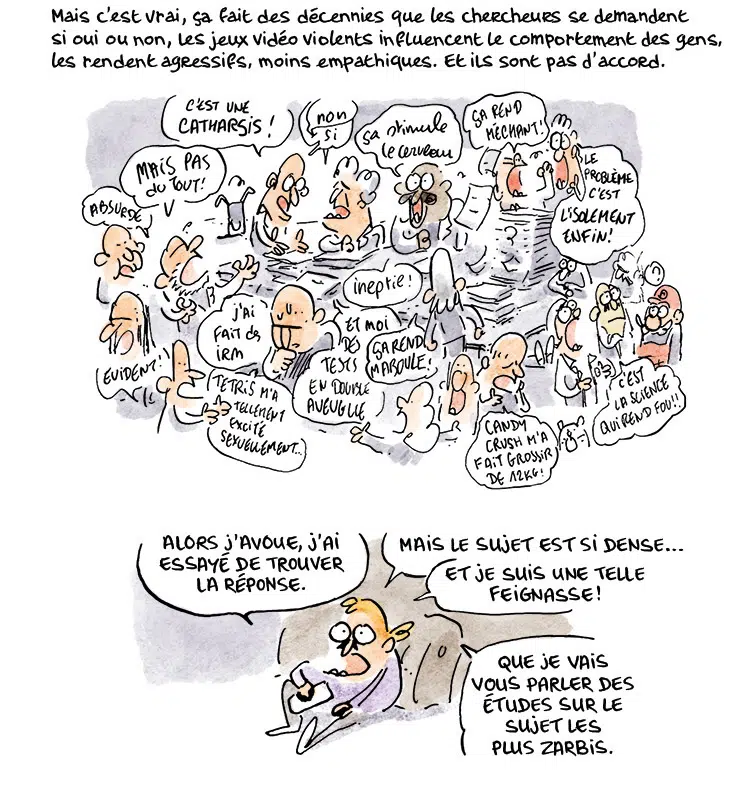 Mais c'est vrai, ça fait des décennies que les chercheurs se demandent
si oui ou non, les jeux vidéo violents influencent le comportement des gens,
les rendent agressifs, moins empathiques. Et ils sont pas d'accord.
C'EST UNE
CATHARSIS !
non
si
ça stimule
le cerveau
ÇA REND
MÉCHANT !
MAIS PAS
DU TOUT !
ABSURDE
LE
PROBLÈME
C'EST
L'ISOLEMENT
ENFIN !
ineptie !
j'ai
FAIT des
irm
ET MOI
DES
TESTS
EN DOUBLE
AVEUGLE
ÇA REND
MABOULE !
EVIDENT !
TETRIS M'A
TELLEMENT
EXCITÉ
SEXUELLEMENT..
CANDY
CRUSH M'A
FAIT GROSSIR
DE 12KG !
C'EST
LA SCIENCE
QUI REND FOU !!
ALORS J'AVOUE, J'AI
ESSAYÉ DE TROUVER
LA RÉPONSE.
MAIS LE SUJET EST SI DENSE...
ET JE SUIS UNE TELLE
FEIGNASSE !
QUE JE VAIS
VOUS PARLER DES
ÉTUDES SUR LE
SUJET LES
PLUS ZARBIS.